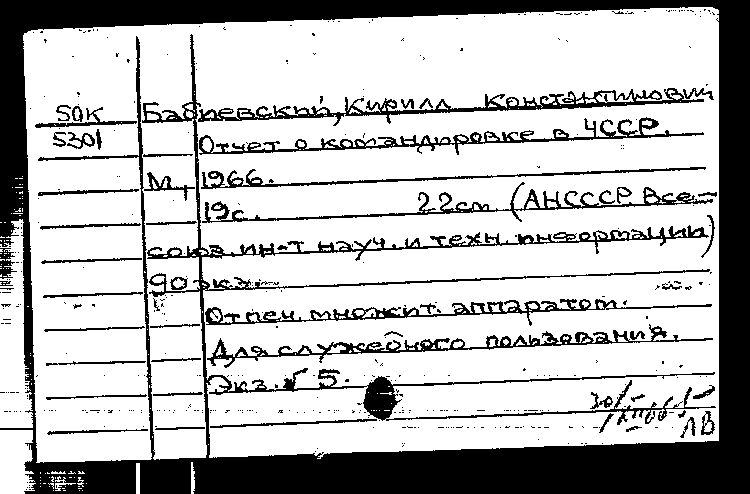 50К Бабиевский, Кирилл Константинович
5301 Отчет о командировке в ЧССР.
М, 1966.
19с. 22см (АНСССР. Все-
союз. ин-т науч. и техн. информации)
90 экз.
Отпеч. множит. аппаратом.
Для служебного пользования.
Экз. 5.
ЛВ